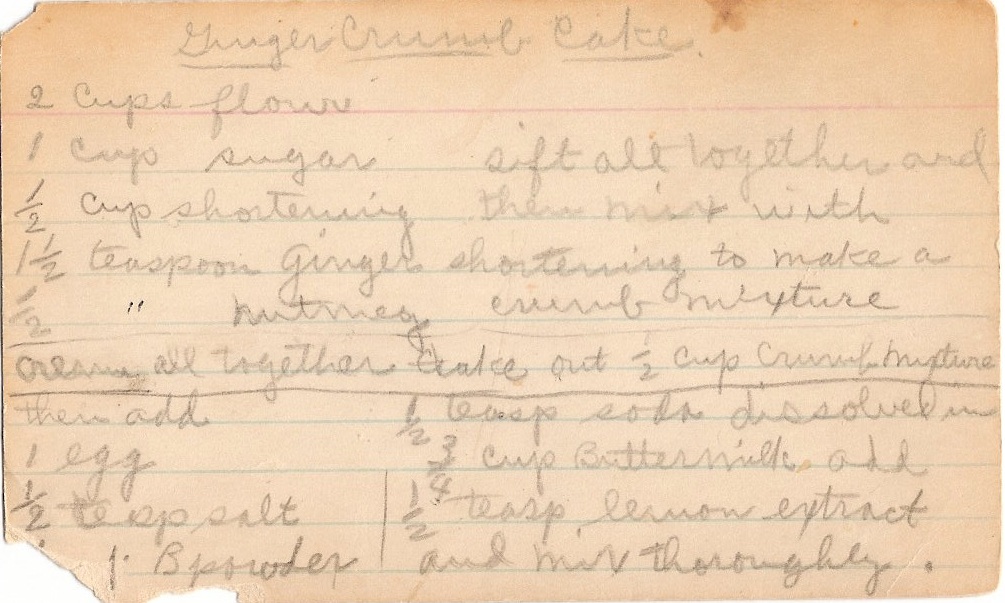 Ginger Crumb Cake.
2 Cups flour
1 cup sugar sift all together and
1/2 cup shortening then mix with
1 1/2 teaspoon Ginger shortening to make a
1/2 " nutmeg crumb mixture
cream all together take out 1/2 cup Crumb Mixture
then add 1/2 teasp soda dissolved in
1 egg 3/4 cup Buttermilk, add
1/2 teasp salt 1/2 teasp lemon extract
1 B powder and mix thoroughly.